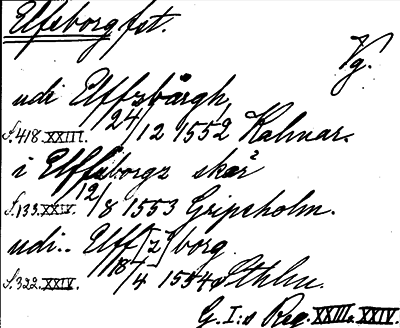 Elfsborg fst.
Vg.
udi Elffzbårgh,
s. 418. XXIII. 24/12 1552 Kalmar.
i Elffzborgz skær
s. 133. XXIV. 12/8 1553 Gripsholm.
udi.. Elff[z]borg
s. 322. XXIV. 18/4 1554 Sthlm.
G. I:s Reg. XXIII. XXIV.